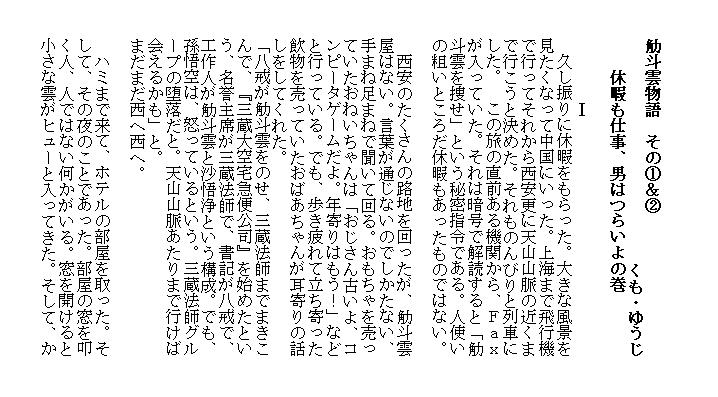 觔斗雲物語　その①＆②
休暇も仕事、男はつらいよの巻
くも・ゆうじ
Ⅰ
久し振りに休暇をもらった。大きな風景を
見たくなって中国にいった。上海まで飛行機
で行ってそれから西安更に天山山脈の近くま
で行こうと決めた。それものんびりと列車に
した。　この旅の直前ある機関から、Ｆａｘ
が入っていた。それは暗号で解読すると「觔
斗雲を捜せ」という秘密指令である。人使い
の粗いところだ休暇もあったものではない。
西安のたくさんの路地を回ったが、觔斗雲
屋はない。言葉が通じないのでしかたない、
手まね足まねで聞いて回る。おもちゃを売っ
ていたおねいちゃんは「おじさん古いよ、コ
ンピータゲームだよ。年寄りはもう！」など
と行っている。でも、歩き疲れて立ち寄った
飲物を売っていたおばあちゃんが耳寄りの話
しをしてくれた。
「八戒が觔斗雲をのせ、三蔵法師までまきこ
んで、『三蔵大空宅急便公司』を始めたとい
う、名誉主席が三蔵法師で、書記が八戒で、
工作人が觔斗雲と沙悟浄という構成。でも、
孫悟空は、怒っているという。三蔵法師グル
ープの堕落だと。天山山脈あたりまで行けば
会えるかも」と。
まだまだ西へ西へ。
ハミまで来て、ホテルの部屋を取った。そ
して、その夜のことであった。部屋の窓を叩
く人、人ではない何かがいる。窓を開けると
小さな雲がヒューと入ってきた。そして、か